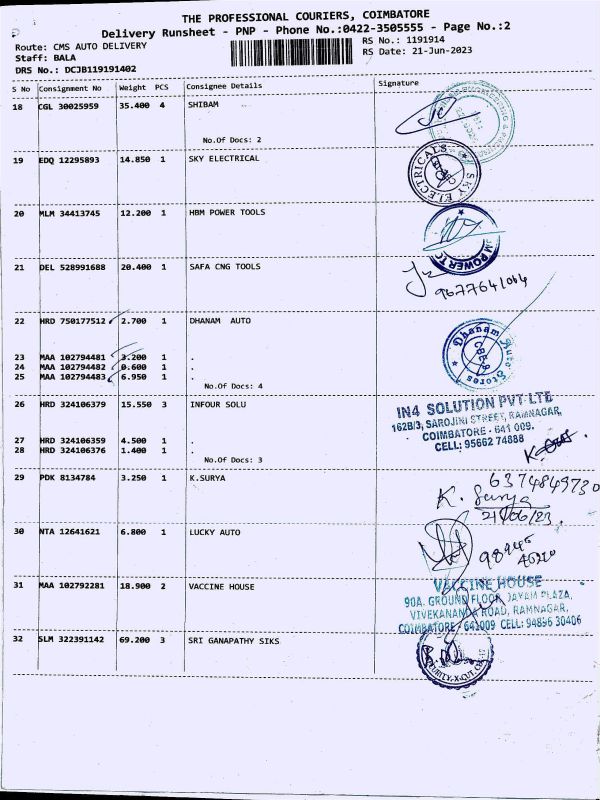 THE PROFESSIONAL COURIERS, COIMBATORE
Delivery Runsheet - PNP - Phone No.:0422-3505555 - Page No.:2
Route: CMS AUTO DELIVERY
RS No.: 1191914
Staff: BALA
RS Date: 21-Jun-2023
DRS No.: DCJB119191402
S No Consignment No Weight PCS Consignee Details Signature
18 CGL 30025959 35.400 4 SHIBAM
No.Of Docs: 2
19 EDQ 12295893 14.850 1 SKY ELECTRICAL
SKY ELECTRICALS
20 MLM 34413745 12.200 1 HBM POWER TOOLS
21 DEL 528991688 20.400 1 SAFA CNG TOOLS
9677641064
22 HRD 750177512 2.700 1 DHANAM AUTO
Dhanam Auto Stores
CBE-9
23 MAA 102794481 3.200 1 .
24 MAA 102794482 0.600 1 .
25 MAA 102794483 6.950 1 .
No.Of Docs: 4
26 HRD 324106379 15.550 3 INFOUR SOLU
IN4 SOLUTION PVT LTD
162B/3, SAROJINI STREET, RAMNAGAR,
COIMBATORE - 641 009.
CELL: 95662 74888
27 HRD 324106359 4.500 1 .
28 HRD 324106376 1.400 1 .
No.Of Docs: 3
29 PDK 8134784 3.250 1 K.SURYA
6374849730
K. Surya
21/06/23.
30 NTA 12641621 6.800 1 LUCKY AUTO
31 MAA 102792281 18.900 2 VACCINE HOUSE
VACCINE HOUSE
90A. GROUND FLOOR, JAYAM PLAZA,
VIVEKANANDA ROAD, RAMNAGAR,
COIMBATORE - 641009 CELL: 94896 30406
32 SLM 322391142 69.200 3 SRI GANAPATHY SIKS